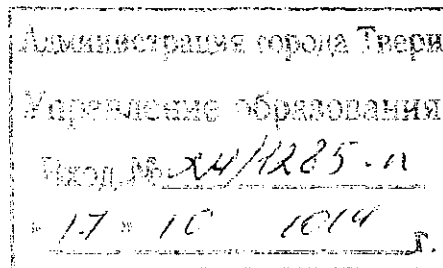 Администрация города Твери
Управление образования
Вход. № 24/1285-п
" 17 " 10 2014 г.